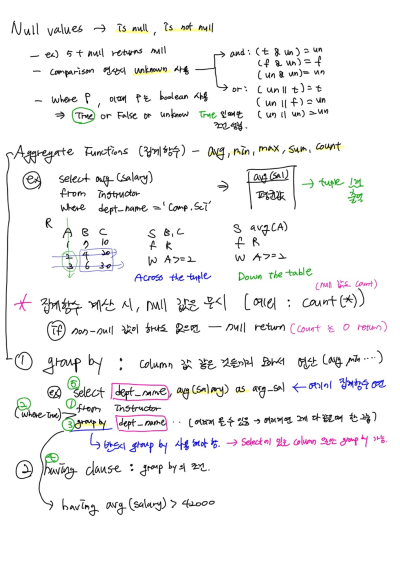 Null values → is null, is not null
- ex) 5 + null returns null
- Comparison 연산시 unknown 사용
→ and : (t & un) = un
(f & un) = f
(un & un) = un
→ or : (un || t) = t
(un || f) = un
(un || un) = un
- Where P, 이때 P는 boolean 사용
⇒ True or False or unknow True 일때만
Aggregate Functions (집계함수) - avg, min, max, sum, count
ex) select avg (salary)
from instructor
where dept_name = 'Comp.Sci'
⇒ avg(sal)
평균값
→ tuple 1개 출력
R
A B C
1 2 10
2 4 20
3 6 30
S B, C
f R
W A>=2
Across the tuple
S avg(A)
f R
W A>=2
Down the table
(null 값도 count)
* 집계함수 계산 시, null 값은 무시 (예외 : count(*))
if non-null 값이 하나도 없으면 — null return (count는 0 return)
① group by : column 값 같은 것끼리 모아서 연산 (avg, min ....)
ex) ⑤ select dept_name, avg(salary) as avg_sal ← 여기에 집계함수
① from instructor
② (where True)
③ group by dept_name
↳ 반드시 group by 사용해야 함. → Select에 있는 column group by 가능.
② having clause : group by의 조건.
④
→ having avg (salary) > 42000